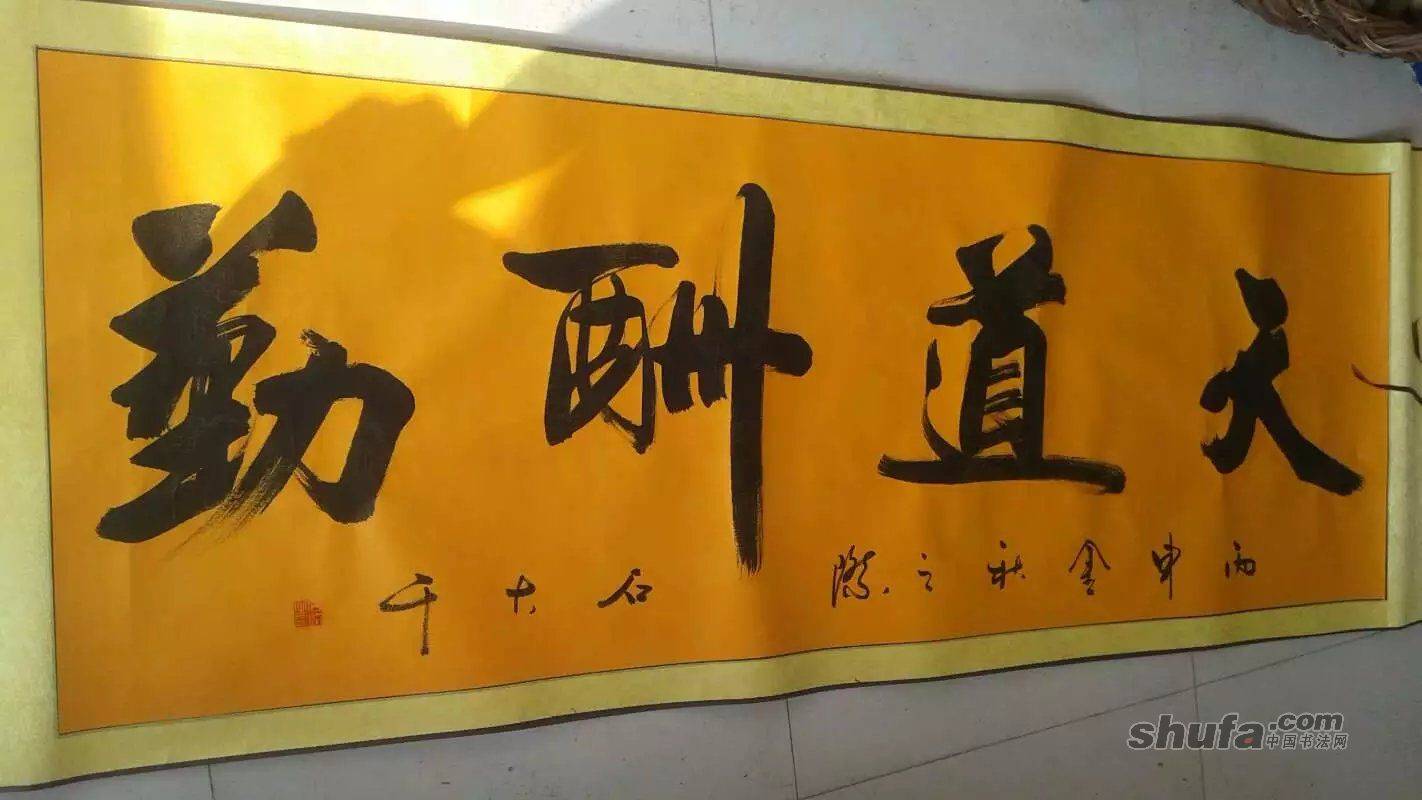 天道酬勤
丙申金秋之际 石大千
shufa.com
中国书法网